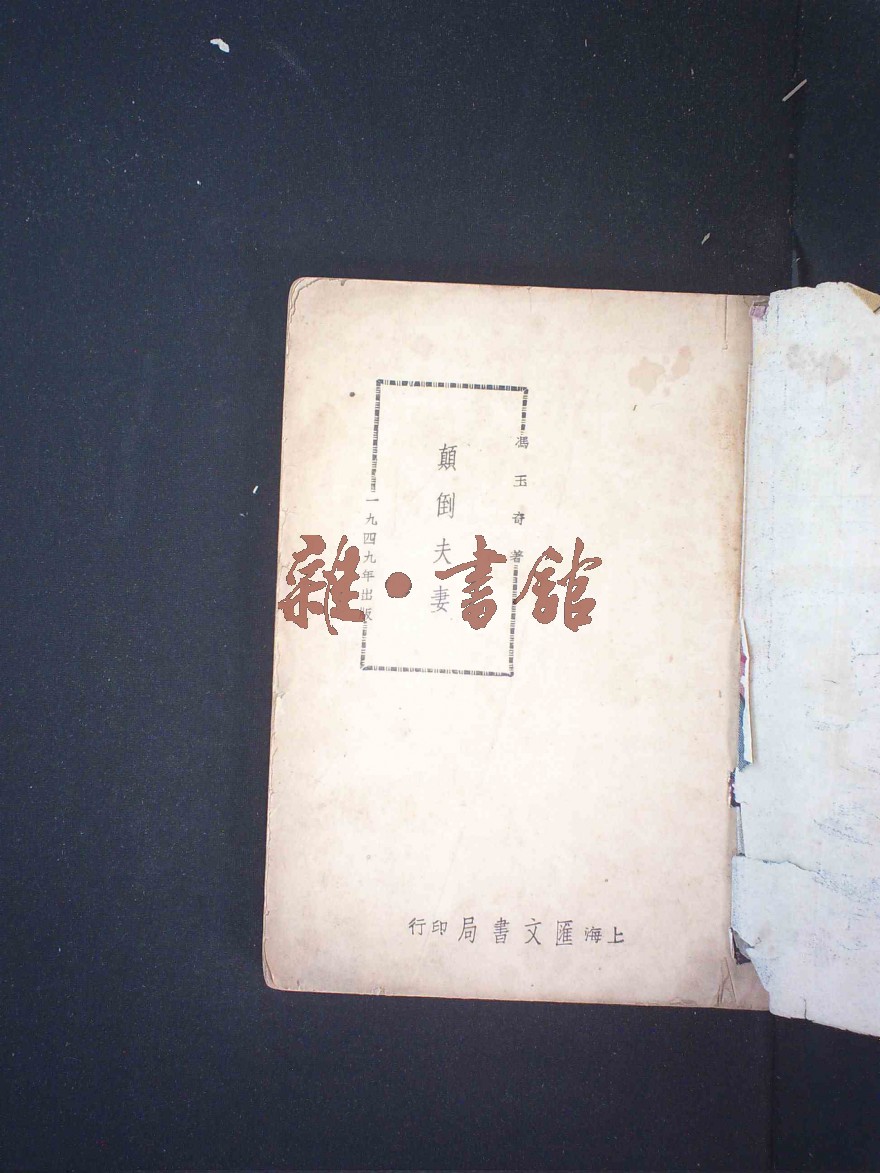 馮玉奇著
顛倒夫妻
一九四九年出版
上海匯文書局印行
雜•書館